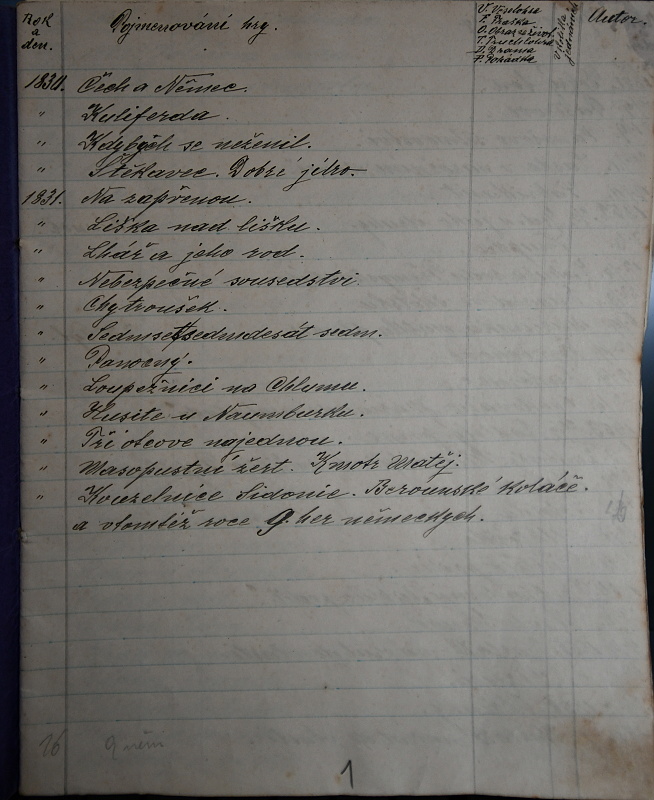 Rok
a
den.
Pojmenování hry.
V. Veselohra
F. Fraška
O. Obraz ze živ.
T. Truchlohra
D. Drama
P. Pohádka
v kolika
jednáních
Autor.
1830. Čech a Němec.
" Kuliferda.
" Kdybych se neženil.
" Štěkavec. Dobré jitro.
1831. Na zapřenou.
" Liška nad lišku.
" Lhář a jeho rod.
" Nebezpečné sousedstvi.
" Chytroušek.
" Sedmsetsedmdesát sedm.
" Ranocný.
" Loupežníci na Chlumu.
" Husité u Naumburku.
" Tři otcové najednou.
" Masopustní žert. Kmotr Matěj.
" Kouzelnice Sidonie. Berounské koláče.
a vtomtéž roce 9 her německých.
16 9 něm
1